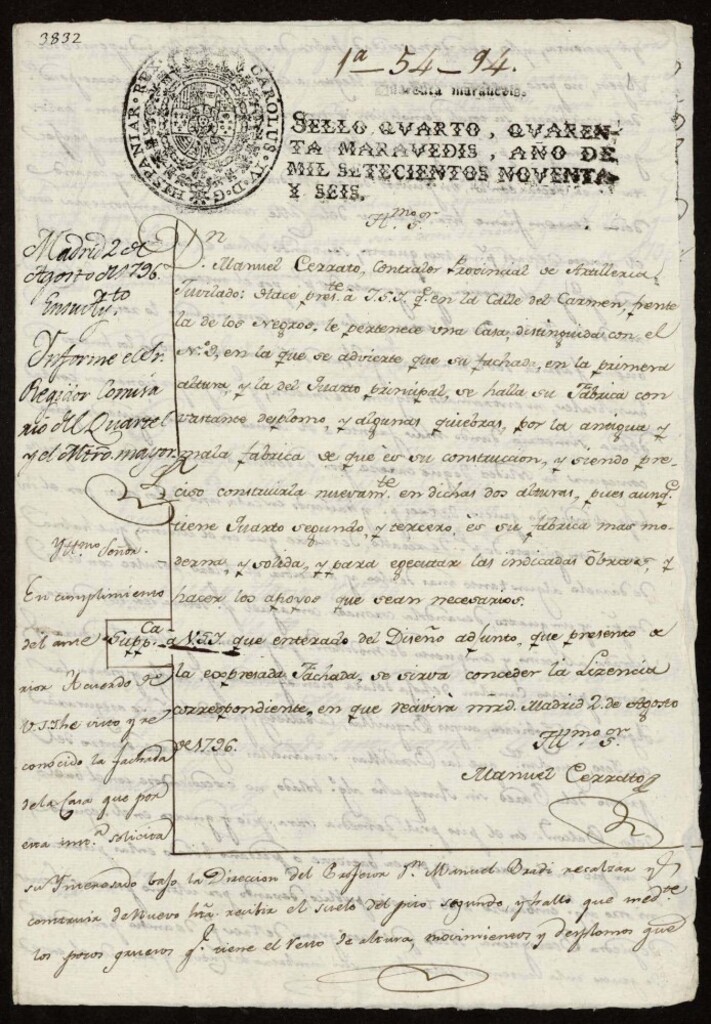 3832
1ª_54_94.
CAROLUS IV D G HISPANIAR REX
SELLO QVARTO, QVAREN-
TA MARAVEDIS, AÑO DE
MIL SETECIENTOS NOVENTA
Y SEIS.
Yllmo Sr.
Dn. Manuel Cerrato, Contralor Provincial de Artilleria
Juvilado: Hace preste. à V.S.Y. qe. en la Calle del Carmen, frente
la de los Negros. le pertenece una Casa, distinguida con el
N.º 9, en la que se advierte que su fachada, en la primera
altura, y la del Quarto principal, se halla su Fabrica con
vastante desplomo, y algunas quiebras, por la antigua y
mala fabrica de que ès su construccion, y siendo pre-
ciso construirla nuevamte. en dichas dos alturas, pues aunqe.
tiene Quarto segundo, y tercero, ès su fabrica mas mo-
derna, y solida, y para egecutar las indicadas Obras, y
hacer los apoyos que sean necesarios.
Suppca. a V.S.Y. que enterado del Diseño adjunto, que presento de
la expresada Fachada, se sirva conceder la Lizencia
correspondiente, en que recivirà mrd. Madrid 2. de Agosto
de 1796.
Yllmo Sr.
Manuel Cerrato
Madrid 2 de
Agosto de 1796.
En su Aytto.
Informe el Sr.
Regidor Comisa
rio del Quartel
y el Mtro. mayor
Yllmo Señor.
En cumplimiento
del ante
rior Acuerdo de
V.S.Y he visto y re
conocido la fachada
de la Casa que por
esta instª. solicita
su Ynteresado bajo la Direccion del Profesor Dn. Manuel Bradi recalzar y
construir de Nuevo hta. recibir el suelo del piso segundo, y hallo que medte.
los pocos gruesos qe. tiene el resto de altura, movimientos y desplomos que